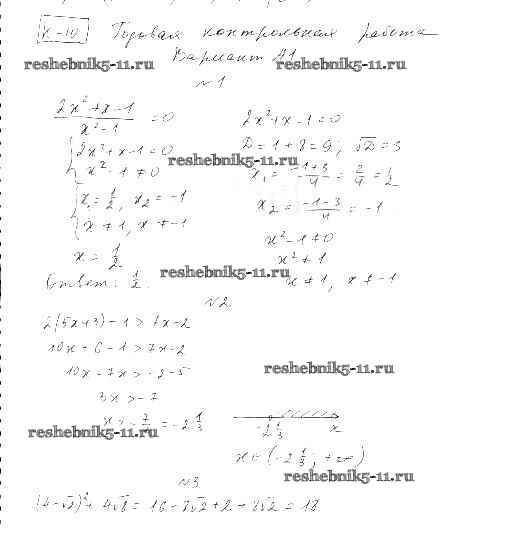 К-10 Годовая контрольная работа
reshebnik5-11.ru Вариант А1 reshebnik5-11.ru
№1
(2x²+x-1)/(x²-1) = 0
2x²+x-1=0
{2x²+x-1=0
D=1+8=9; √D=3
reshebnik5-11.ru
{x²-1≠0
x₁=(-1+3)/4=2/4=1/2
{x₁=1/2, x₂=-1
x₂=(-1-3)/4=-1
{x≠1, x≠-1
x²-1≠0
x=1/2
x²≠1
Ответ: 1/2. reshebnik5-11.ru
x≠1, x≠-1
№2
2(5x+3)-1>7x-2
10x+6-1>7x-2
10x-7x>-2-5
reshebnik5-11.ru
3x>-7
x>-7/3=-2 1/3
-2 1/3 x
reshebnik5-11.ru
x∈(-2 1/3; +∞)
№3
reshebnik5-11.ru
(4-√2)²+4√8=16-8√2+2+8√2=18